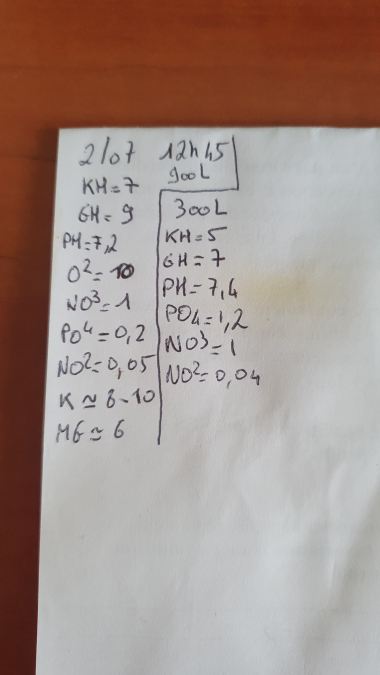 2/07 12h45
900L
KH=7
GH=9
PH=7,2
O²=10
NO³=1
PO⁴=0,2
NO²=0,05
K ≃ 8-10
MG ≃ 6
300L
KH=5
GH=7
PH=7,4
PO4=1,2
NO³=1
NO²=0,04